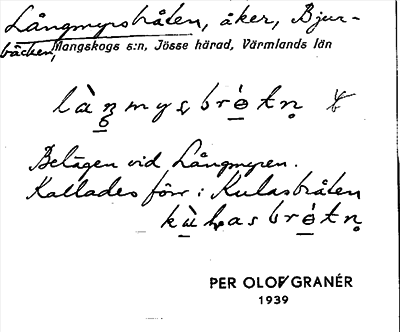 Långmyrsbråten, åker, Bjur-
bäcken, Mangskogs s:n, Jösse härad, Värmlands län
Belägen vid Långmyren.
Kallades förr: Kulasbråten
PER OLOF GRANÉR
1939